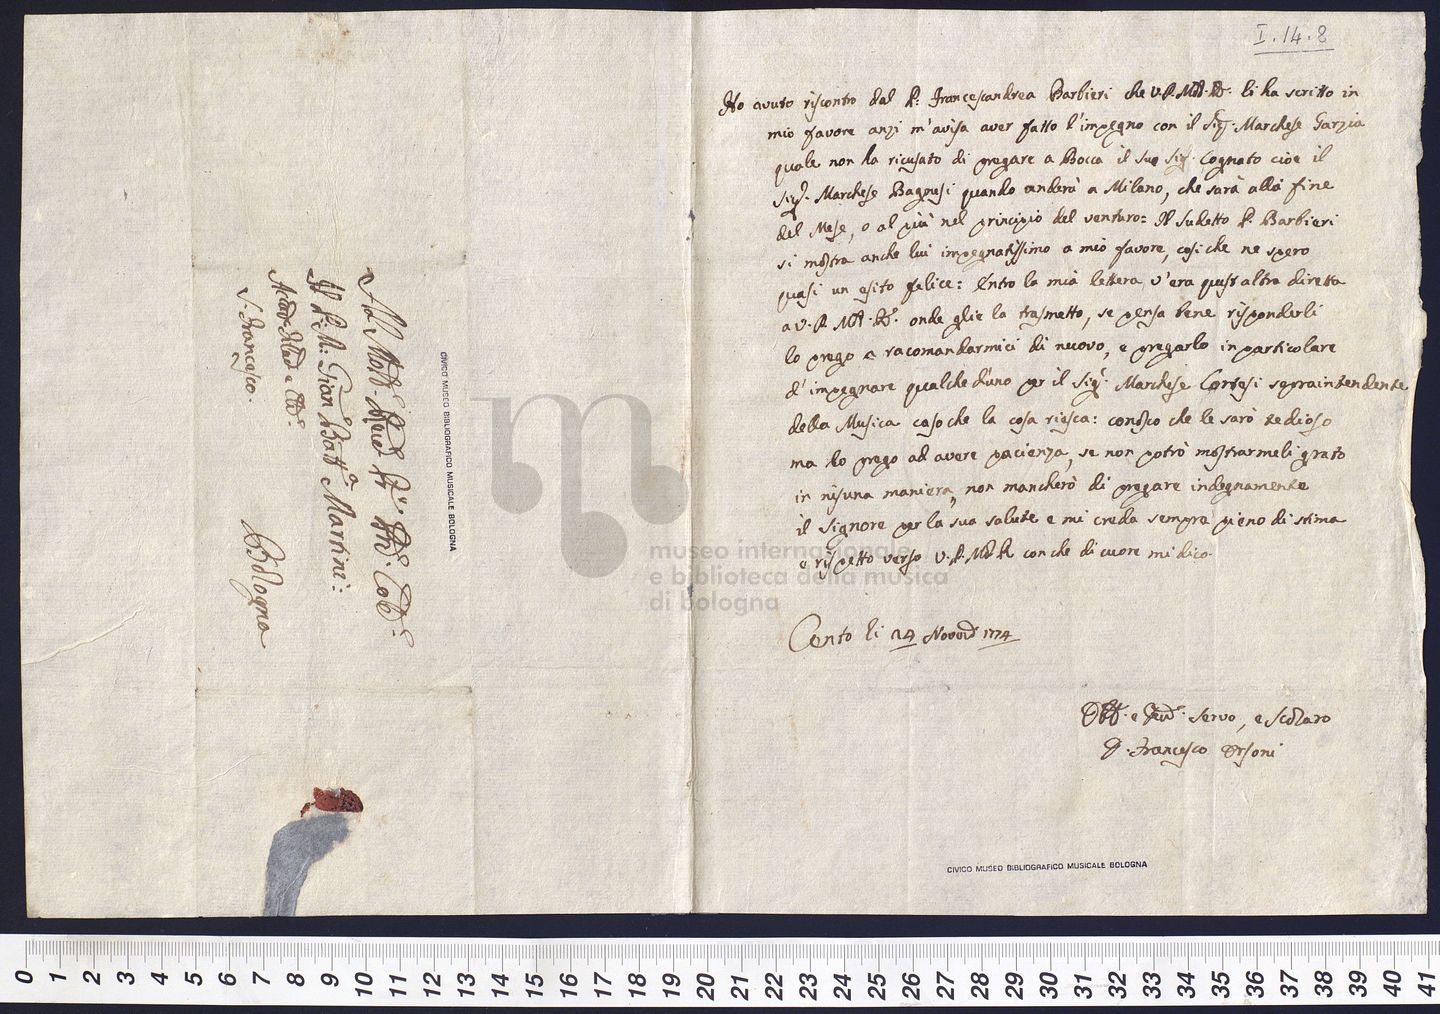 I.14.8
Ho avuto riscontro dal P: Francescandrea Barbieri che V.P.M. R. li ha scritto in
mio favore anzi m'avisa aver fatto l'impegno con il Sig. Marchese Garzia
quale non ha ricusato di pregare a Bocca il suo Sig. Cognato cioè il
Sig. Marchese Bagnesi quando anderà a Milano, che sarà alla fine
del Mese, o al più nel principio del venturo: Il sudetto P. Barbieri
si mostra anche lui impegnatissimo a mio favore, cosi che ne spero
quasi un esito felice: Entro la mia lettera v'era quest'altra diretta
a V.P.M.R. onde glie la trasmetto, se pensa bene risponderli
lo prego a racomandarmici di nuovo, e pregarlo in particolare
d'impegnare qualched'uno per il Sig. Marchese Cortesi sopraintendente
della Musica caso che la cosa riesca: conosco che le sarò tedioso
ma lo prego ad avere pacienza, se non potrò mostrarmeli grato
in nisuna maniera, non mancherò di pregare indegnamente
il Signore per la sua salute e mi creda sempre pieno di stima
e rispetto verso V.P.M.R. con che di cuore mi dico.
Cento li 24 Novem 1774
e servo, e Scolaro
Francesco Orsoni
CIVICO MUSEO BIBLIOGRAFICO MUSICALE BOLOGNA
Al
Il P. M: Gian Batt.a Martini:
S. Francesco.
Bologna
CIVICO MUSEO BIBLIOGRAFICO MUSICALE BOLOGNA
museo internazionale
e biblioteca della musica
di bologna
0 1 2 3 4 5 6 7 8 9 10 11 12 13 14 15 16 17 18 19 20 21 22 23 24 25 26 27 28 29 30 31 32 33 34 35 36 37 38 39 40 41